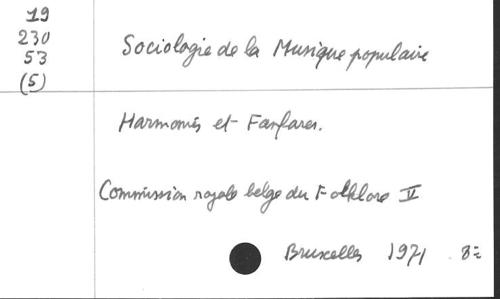 19
230
53
(5)
Sociologie de la Musique populaire
Harmonies et Fanfares.
Commission royale belge du Folklore V
Bruxelles 1971 8=